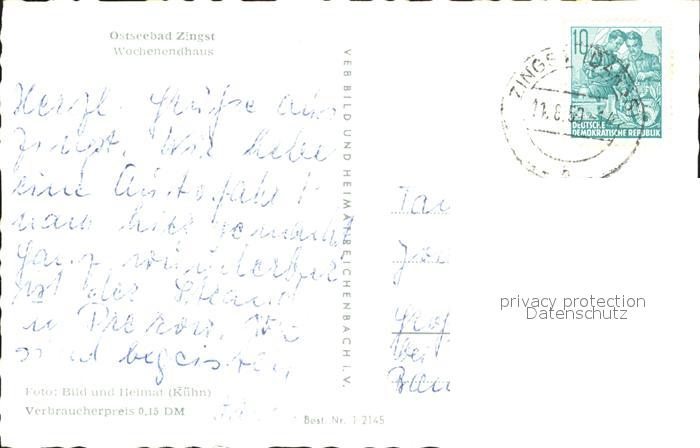 Ostseebad Zingst
Wochenendhaus
Herzl. Grüße aus
Zingst. Wir haben
eine Autofahrt
nach hier gemacht
Ganz wunderbar
ist der Strand
in Prerow. Wir
sind begeistert,
Foto: Bild und Heimat (Kühn)
Verbraucherpreis 0,15 DM
VEB BILD UND HEIMAT REICHENBACH I. V.
Best. Nr. 1 2145
10
DEUTSCHE
DEMOKRATISCHE REPUBLIK
ZINGST
privacy protection
Datenschutz